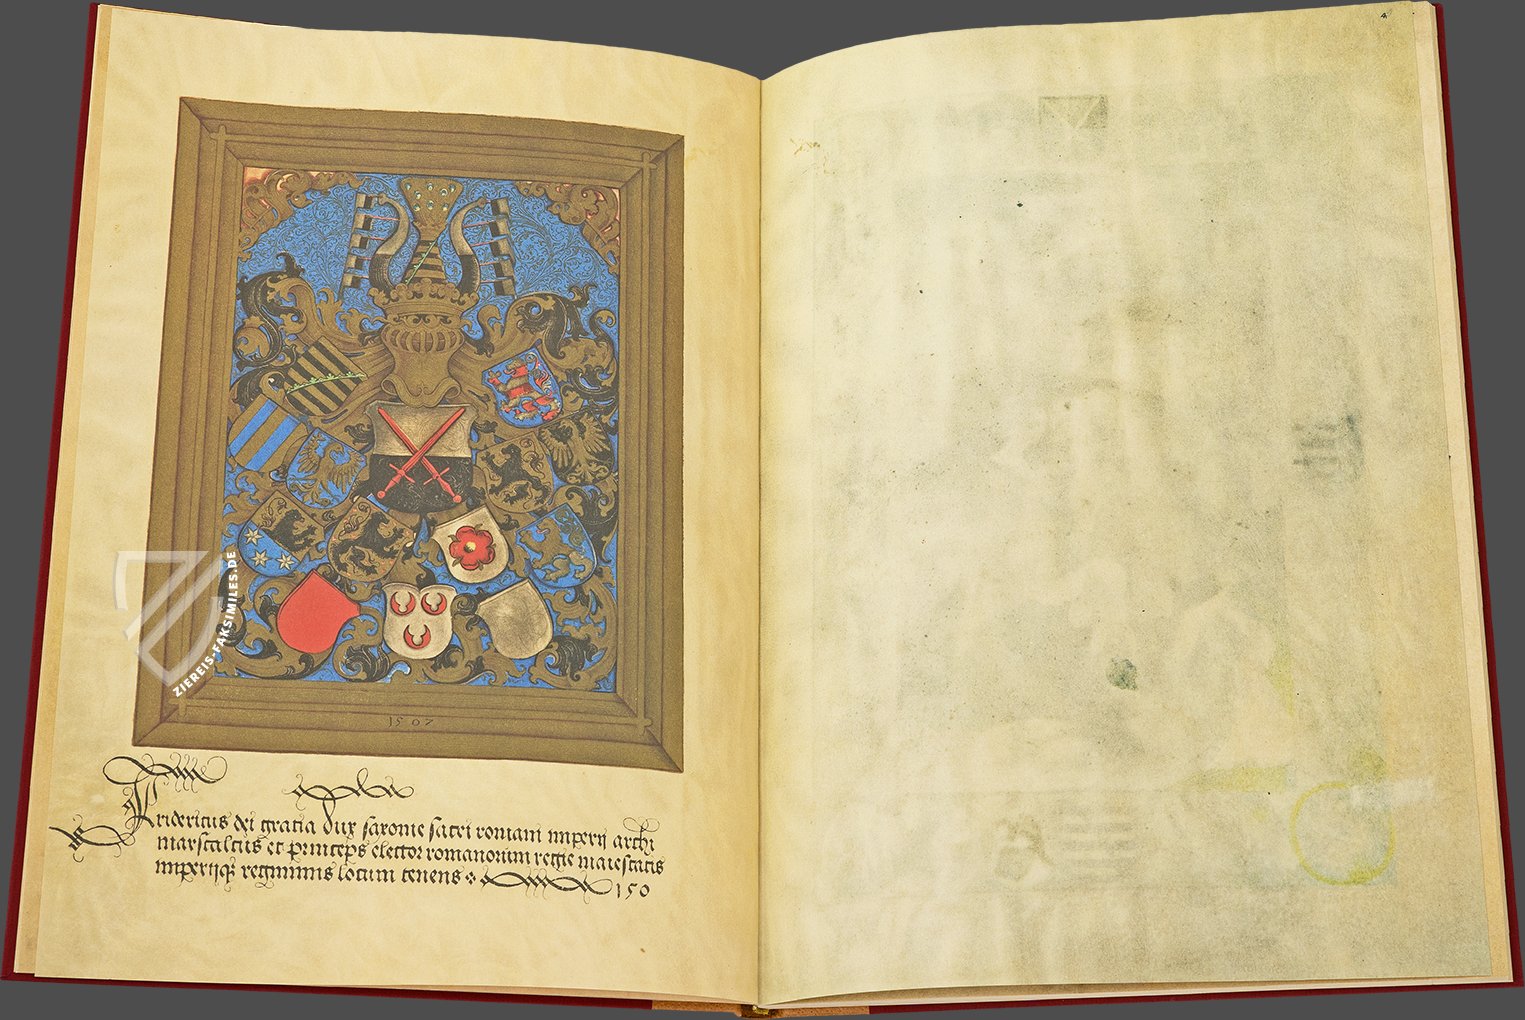 1507
Fridericus dei gratia dux saxonie sacri romani imperij archi
marscalcus et princeps elector romanorum regie maiestatis
imperijq; regiminis locum tenens 150
ZIEREIS-FAKSIMILES.DE
4